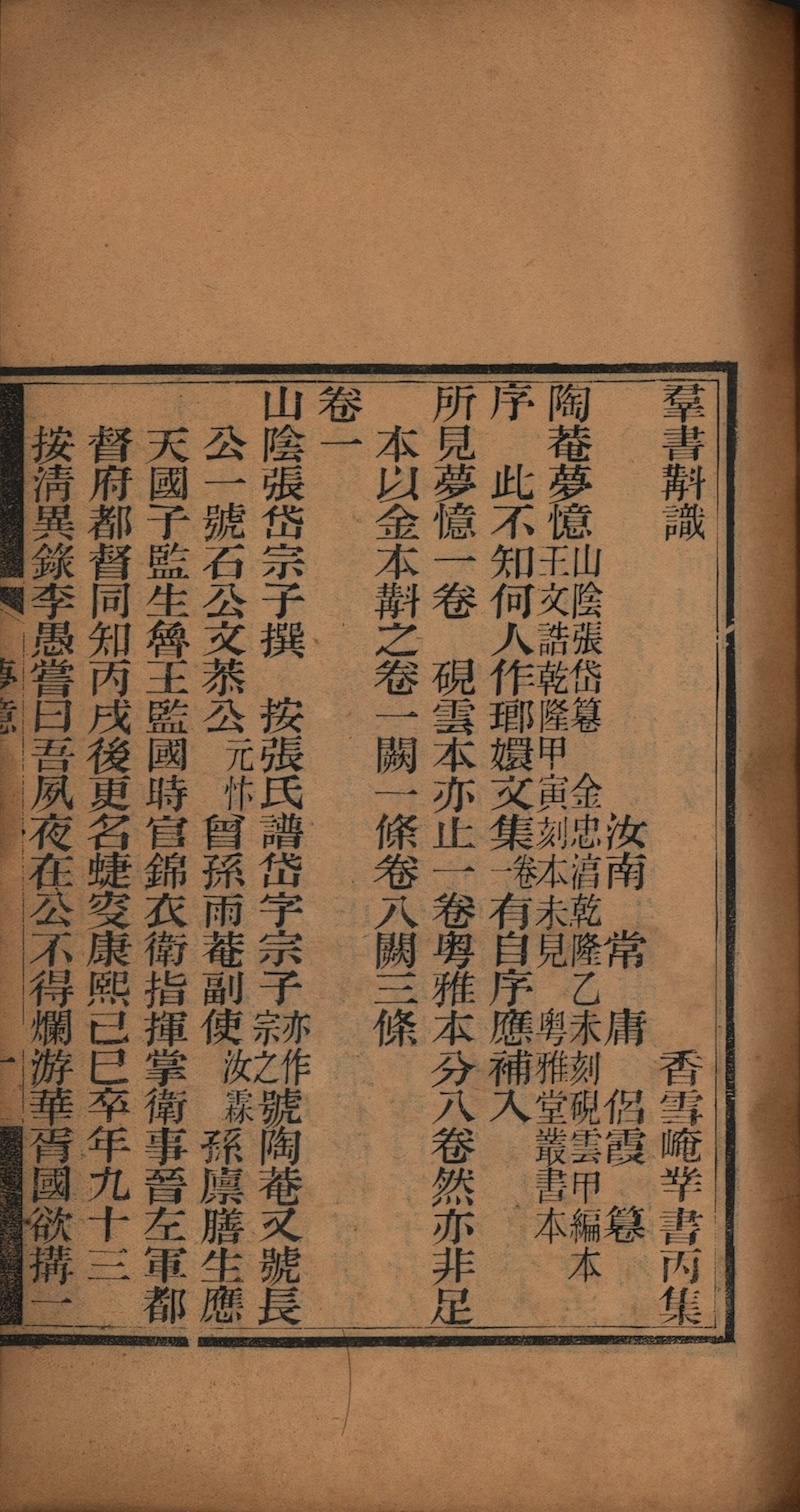 羣書斠識　香雪崦丵書丙集
汝南　常　庸　侶霞　篹
陶菴夢憶山陰張岱篹　金忠淓乾隆乙未刻硯雲甲編本
王文誥乾隆甲寅刻本未見　粵雅堂叢書本
序　此不知何人作瑯嬛文集一卷有自序應補入
所見夢憶一卷　硯雲本亦止一卷粵雅本分八卷然亦非足
本以金本斠之卷一闕一條卷八闕三條
卷一
山陰張岱宗子撰　按張氏譜岱字宗子亦作宗之號陶菴又號長
公一號石公文恭公元忭曾孫雨菴副使汝霖孫廪膳生應
天國子監生魯王監國時官錦衣衛指揮掌衛事晉左軍都
督府都督同知丙戌後更名蜨叜康熙己巳卒年九十三
按淸異錄李愚嘗曰吾夙夜在公不得爛游華胥國欲搆一
夢憶　一